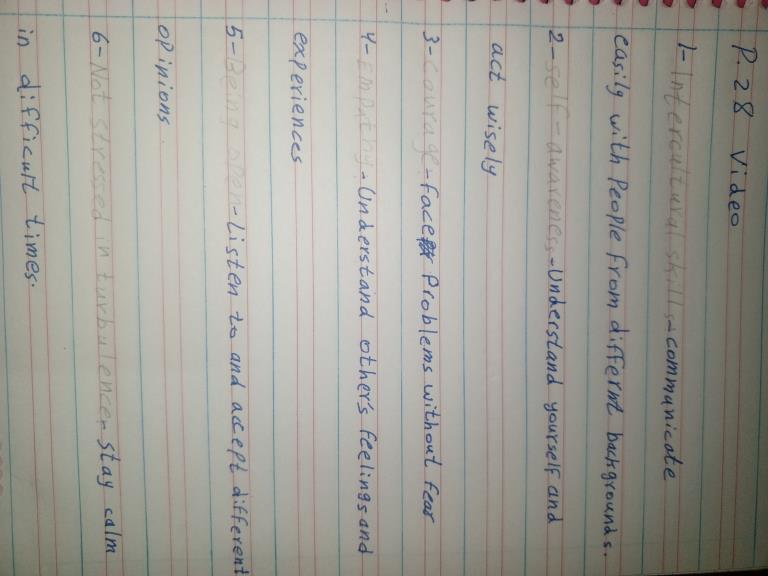 P.28 Video
1- Intercultural skills - communicate
easily with People from differnt backgrounds.
2- self-awareness - Understand yourself and
act wisely
3- courage - face Problems without fear
4- Empathy - Understand other's feelings and
experiences
5- Being open - Listen to and accept different
opinions
6- Not stressed in turbulence - Stay calm
in difficult times.